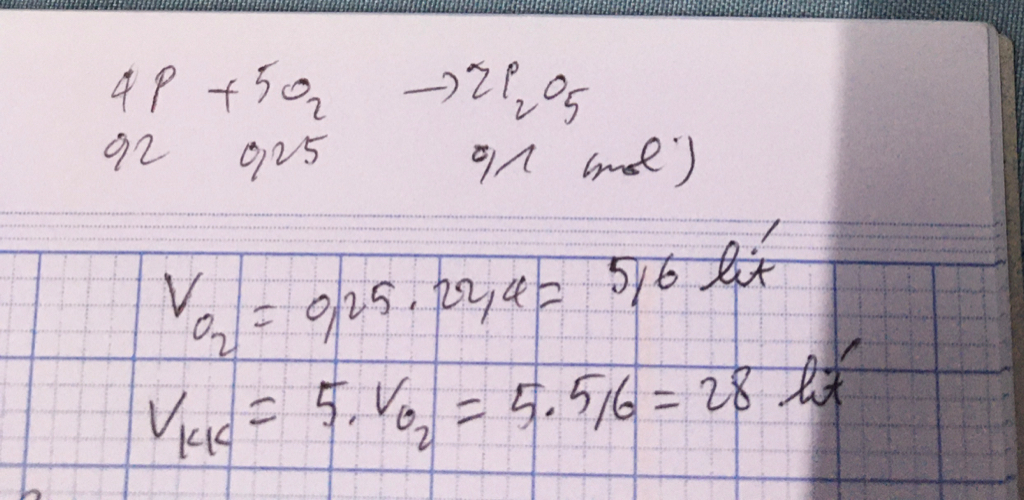 4P + 5O₂ → 2P₂O₅
0,2 0,25 0,1 (mol)
V_O₂ = 0,25 . 22,4 = 5,6 lít
V_KK = 5 . V_O₂ = 5 . 5,6 = 28 lít